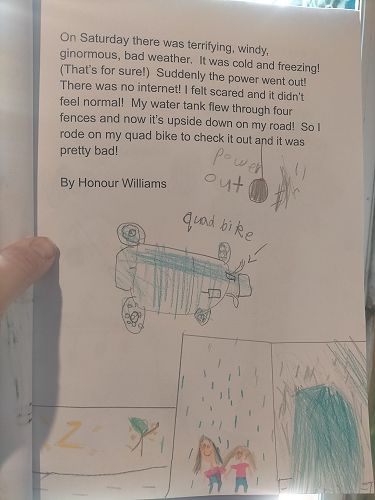 On Saturday there was terrifying, windy,
ginormous, bad weather.  It was cold and freezing!
(That's for sure!)  Suddenly the power went out!
There was no internet! I felt scared and it didn't
feel normal!  My water tank flew through four
fences and now it's upside down on my road!  So I
rode on my quad bike to check it out and it was
pretty bad!
By Honour Williams
power
out
quad bike
Z